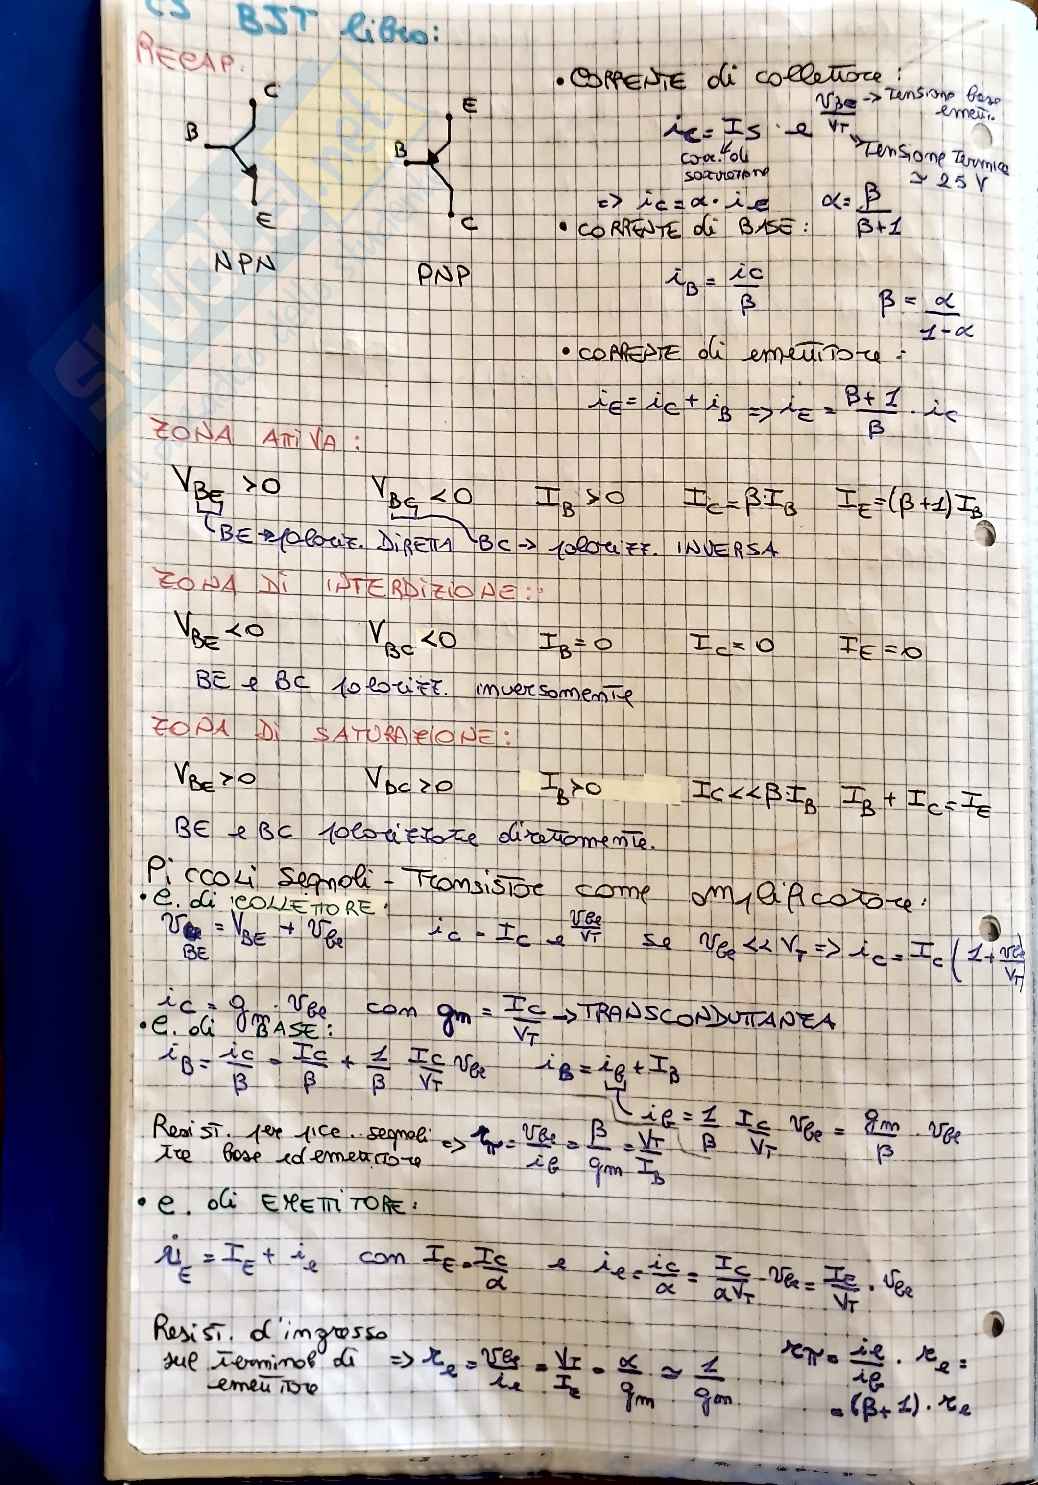 C5 BJT libro:
RECAP:
C
B
E
NPN
E
B
C
PNP
• CORRENTE di collettore:
ic = Is · e^(vBE/VT)
→ Tensione base emett.
→ Tensione Termica ≃ 25 V
corr. di saturazione
=> ic = α · ie    α = β/(β+1)
• CORRENTE di BASE:
iB = ic/β    β = α/(1-α)
• CORRENTE di emettitore:
iE = ic + iB => iE = (β+1)/β · ic
ZONA ATIVA:
VBE > 0    VBC < 0    IB > 0    IC = β·IB    IE = (β+1)IB
BE → polariz. DIRETTA    BC → polarizz. INVERSA
ZONA DI INTERDIZIONE:
VBE < 0    VBC < 0    IB = 0    IC = 0    IE = 0
BE e BC polarizz. inversamente
ZONA DI SATURAZIONE:
VBE > 0    VBC > 0    IB > 0    IC << β·IB    IB + IC = IE
BE e BC polarizzate direttamente.
Piccoli segnali - Transistor come amplificatore:
• C. di COLLETTORE:
vBE = VBE + vbe    ic = Ic e^(vbe/VT)    se vbe << VT => ic = Ic (1 + vbe/VT)
ic = gm · vbe    con gm = IC/VT → TRANSCONDUTTANZA
• C. di BASE:
iB = ic/β = Ic/β + 1/β Ic/VT vbe    iB = ib + IB
ib = 1/β Ic/VT vbe = gm/β · vbe
Resist. per picc. segnali
tra base ed emettitore => rπ = vbe/ib = β/gm = VT/IB
• C. di EMETTITORE:
iE = IE + ie    con IE = Ic/α    e    ie = ic/α = Ic/αVT · vbe = IE/VT · vbe
Resist. d'ingresso
sul terminal di
emettitore => re = vbe/ie = VT/IE = α/gm ≃ 1/gm
rπ = ie/ib · re =
= (β+1) · re